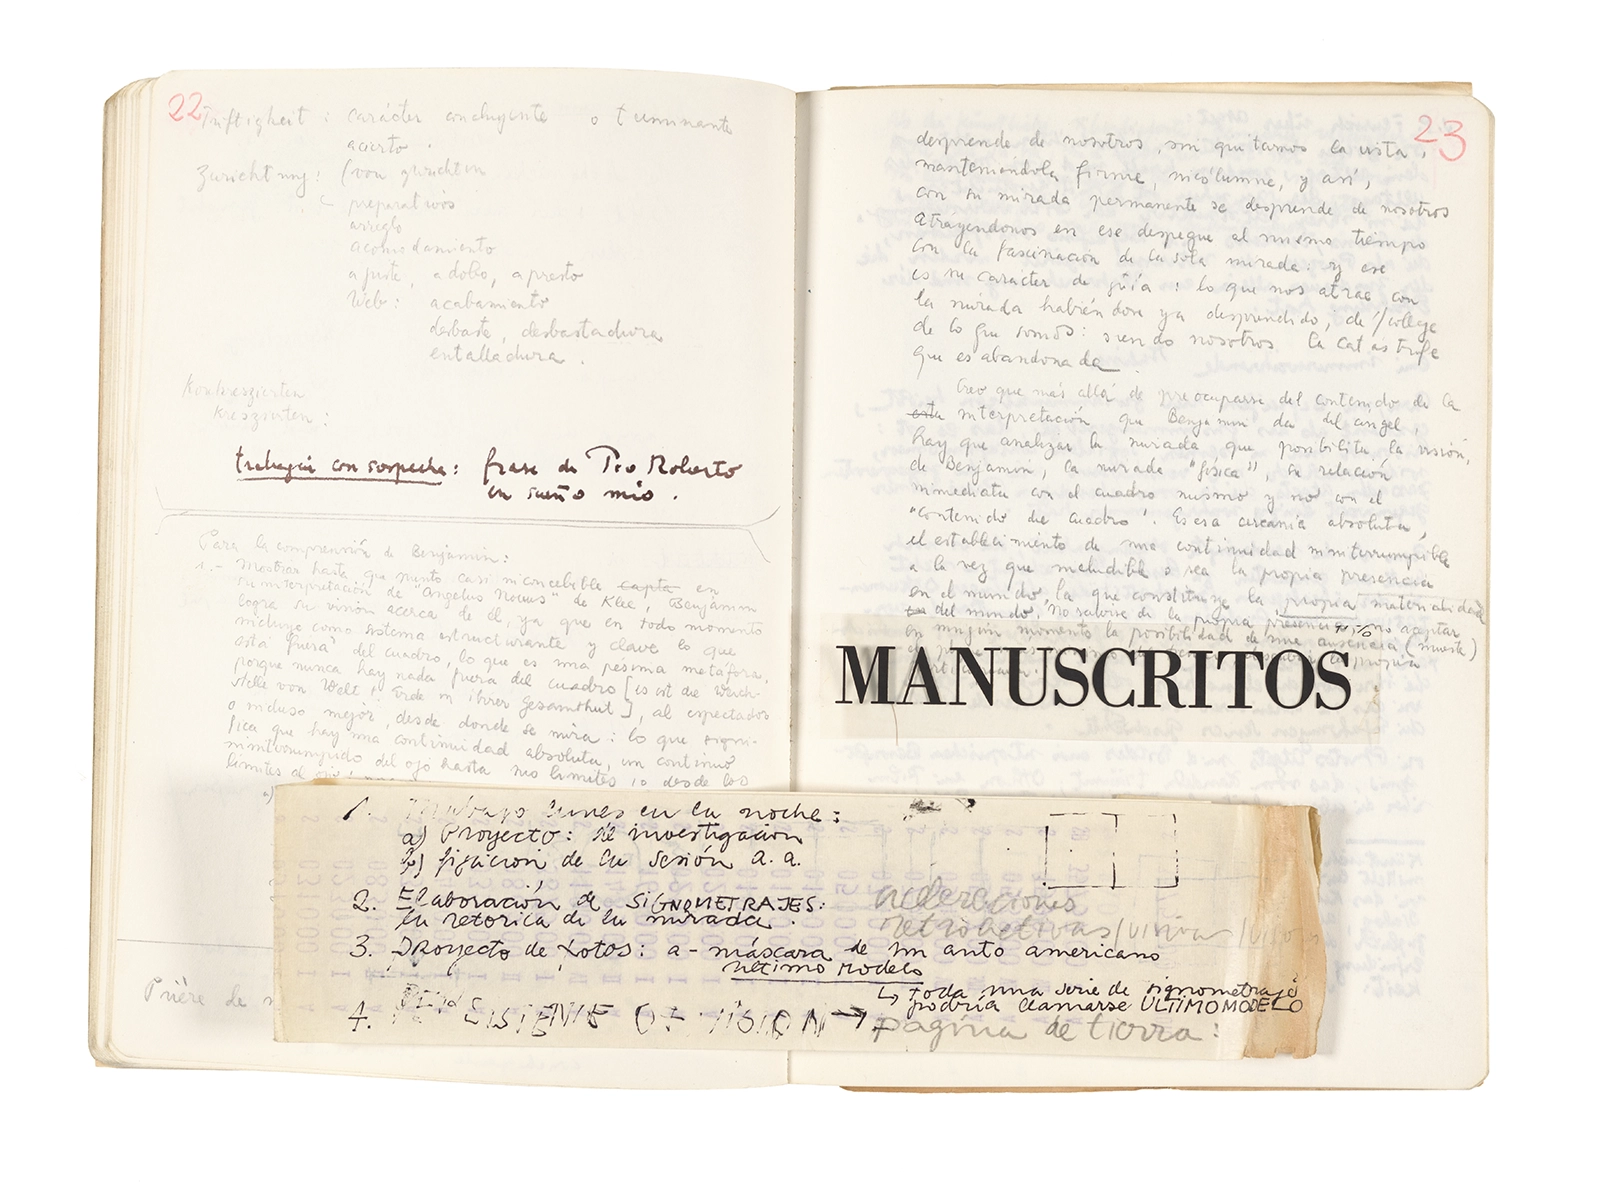 22
Triftigheit : carácter concluyente o tuminante
acierto .
Zurichtung : (von zurichten
preparativos
arreglo
acomodamiento
ajuste, adobo, apresto
Web : acabamiento
desbaste, desbastadura
entalladura .
Konkreszierten
Kreszierten :
trabajar con sospecha : frase de Tío Roberto
en sueño mío .
Para la comprensión de Benjamin :
1.- Mostrar hasta que punto casi inconcebible capta en
su interpretación de "Angelus Novus" de Klee, Benjamin
logra su visión acerca de él, ya que en todo momento
incluye como sistema estructurante y clave lo que
está "fuera" del cuadro, lo que es una pésima metáfora,
porque nunca hay nada fuera del cuadro [es ist die
stelle von Welt, Erde in ihrer Gesamtheit], al espectador
o incluso mejor, desde donde se mira : lo que signi-
fica que hay una continuidad absoluta, un continuo
ininterrumpido del ojo hasta sus límites /o desde los
límites al ojo
a)
Prière de
23
desprende de nosotros, sin quitarnos la vista,
manteniéndola firme, incólumne, y así,
con su mirada permanente se desprende de nosotros
atrayéndonos en ese despegue al mismo tiempo
con la fascinación de la sola mirada : y ese
es su carácter de guía : lo que nos atrae con
la mirada habiéndose ya desprendido, de/college
de lo que somos : siendo nosotros la catástrofe
que es abandonada .
Creo que más allá de preocuparse del contenido de la
esta interpretación que Benjamin da del angel,
hay que analizar la mirada que posibilita, la visión,
de Benjamin, la mirada "física", su relación
inmediata con el cuadro mismo y no con el
"contenido de cuadro". Es esa cercanía absoluta,
el establecimiento de una continuidad ininterrumpible
a la vez que ineludible o sea la propia presencia
en el mundo, la que constituye la propia materialidad
del mundo. No salirse de la propia presencia, no aceptar
en ningún momento la posibilidad de una ausencia (muerte)
MANUSCRITOS
1. Trabajo lunes en la noche :
a) Proyecto : de investigación
b) fijación de la sesión a. a.
2. Elaboración de SIGNOMETRAJES :
la retorica de la mirada .
aceleraciones
retroactivas/visiva/
3. Proyecto de Fotos : a - máscara de un auto americano
último modelo
↳ toda una serie de signometrajes
podría llamarse ULTIMO MODELO
4. PERSISTENCE OF VISION → pagina de tierra :